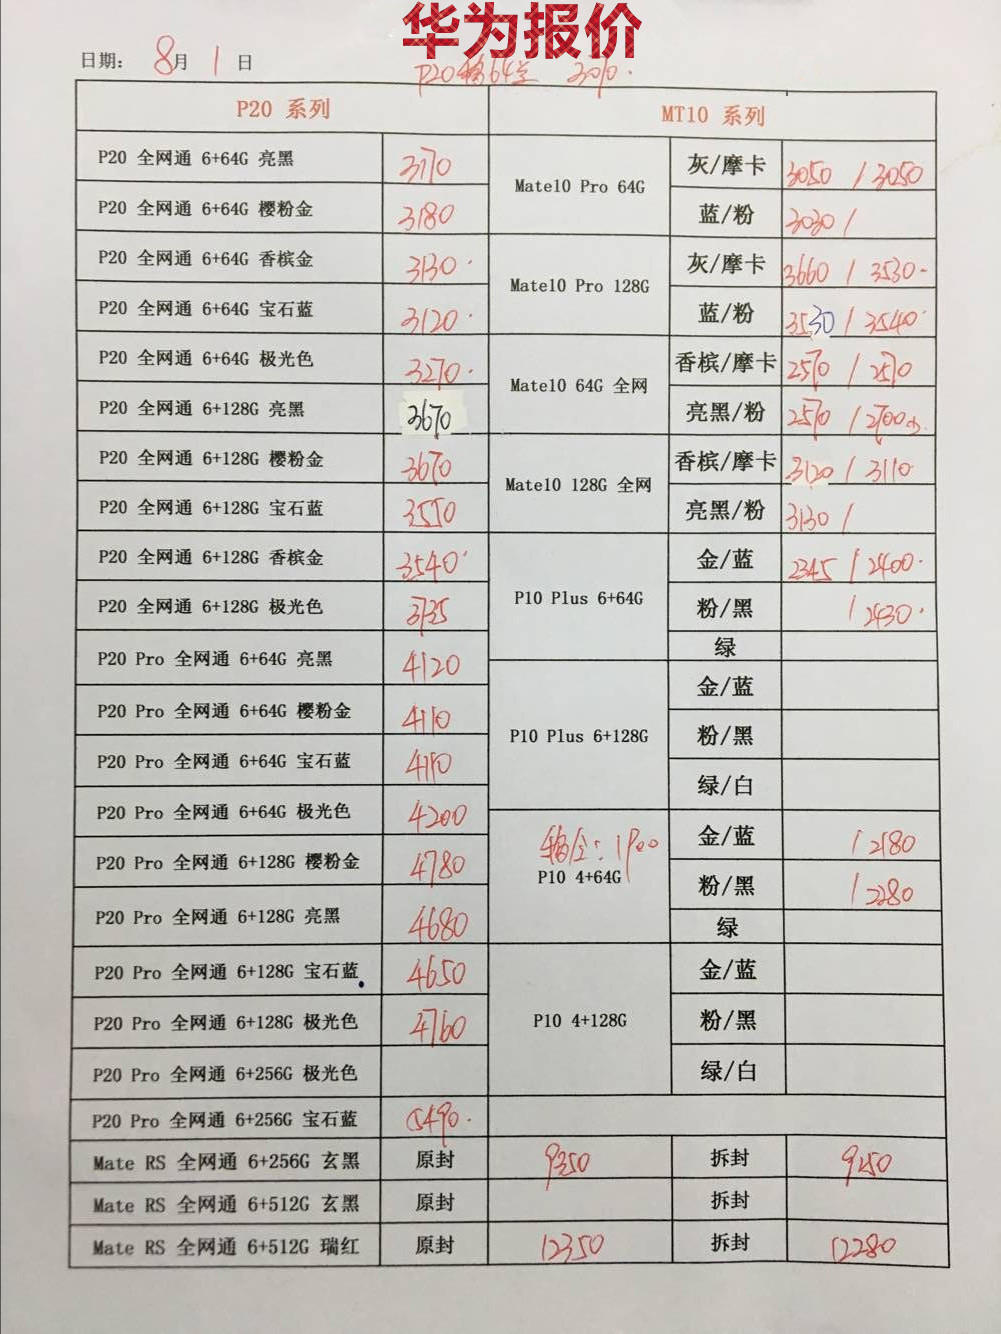 华为报价
日期： 8月 1 日
P20 64 
P20 系列 MT10 系列
P20 全网通 6+64G 亮黑 3170 Mate10 Pro 64G 灰/摩卡 3050 / 3050
P20 全网通 6+64G 樱粉金 3180 蓝/粉 3030 /
P20 全网通 6+64G 香槟金 3130 Mate10 Pro 128G 灰/摩卡 3660 / 3530
P20 全网通 6+64G 宝石蓝 3120 蓝/粉 3530 / 3540
P20 全网通 6+64G 极光色 3270 Mate10 64G 全网 香槟/摩卡 2570 / 2570
P20 全网通 6+128G 亮黑 3670 亮黑/粉 2570 / 2700
P20 全网通 6+128G 樱粉金 3670 Mate10 128G 全网 香槟/摩卡 3120 / 3110
P20 全网通 6+128G 宝石蓝 3550 亮黑/粉 3130 /
P20 全网通 6+128G 香槟金 3540 P10 Plus 6+64G 金/蓝 2345 / 2400
P20 全网通 6+128G 极光色 3735 粉/黑 / 2430
绿
P20 Pro 全网通 6+64G 亮黑 4120 P10 Plus 6+128G 金/蓝
P20 Pro 全网通 6+64G 樱粉金 4110 粉/黑
P20 Pro 全网通 6+64G 宝石蓝 绿/白
P20 Pro 全网通 6+64G 极光色 4200 P10 4+64G 金/蓝 / 2180
P20 Pro 全网通 6+128G 樱粉金 4780 粉/黑 / 2280
P20 Pro 全网通 6+128G 亮黑 4680 绿
P20 Pro 全网通 6+128G 宝石蓝 4650 P10 4+128G 金/蓝
P20 Pro 全网通 6+128G 极光色 4760 粉/黑
P20 Pro 全网通 6+256G 极光色 绿/白
P20 Pro 全网通 6+256G 宝石蓝 5490
Mate RS 全网通 6+256G 玄黑 原封 9350 拆封 9250
Mate RS 全网通 6+512G 玄黑 原封 拆封
Mate RS 全网通 6+512G 瑞红 原封 12350 拆封 12280